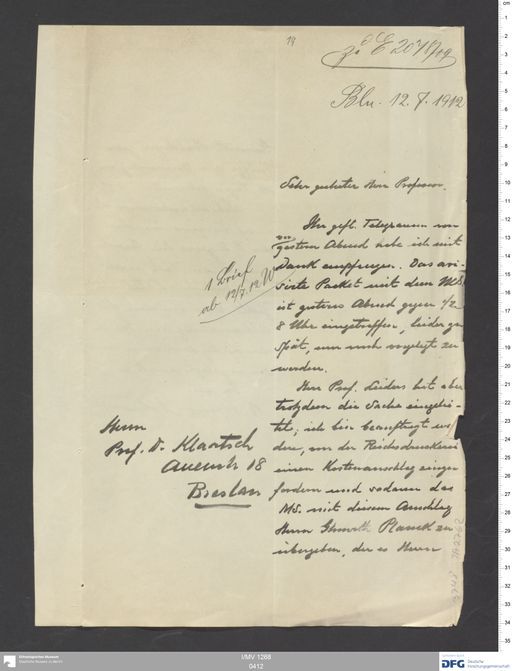 19
zu E 2078/09
Bln. 12. 7. 1912
Sehr geehrter Herr Professor.
Ihr gefl. Telegramm von
gestern Abend habe ich mit
Dank empfangen. Das avi-
sirte Packet mit dem MS
ist gestern Abend gegen 1/2
8 Uhr eingetroffen, leider zu
spät, um noch vorgelegt zu
werden.
Herr Prof. hat aber
trotzdem die Sache eingelei-
tet; ich bin beauftragt wor
den, von der Reichsdruckerei
einen Kostenanschlag einzu
fordern und sodann das
MS. mit diesem Anschlag
Herrn Planck zu
übergeben, der es Herrn
1 Brief
ab 12/7. 12 W
Herrn
Prof. Dr. Klaatsch
18
Breslau
I/MV 1268
0412
Ethnologisches Museum
Staatliche Museen zu Berlin
DFG
Deutsche
Forschungsgemeinschaft